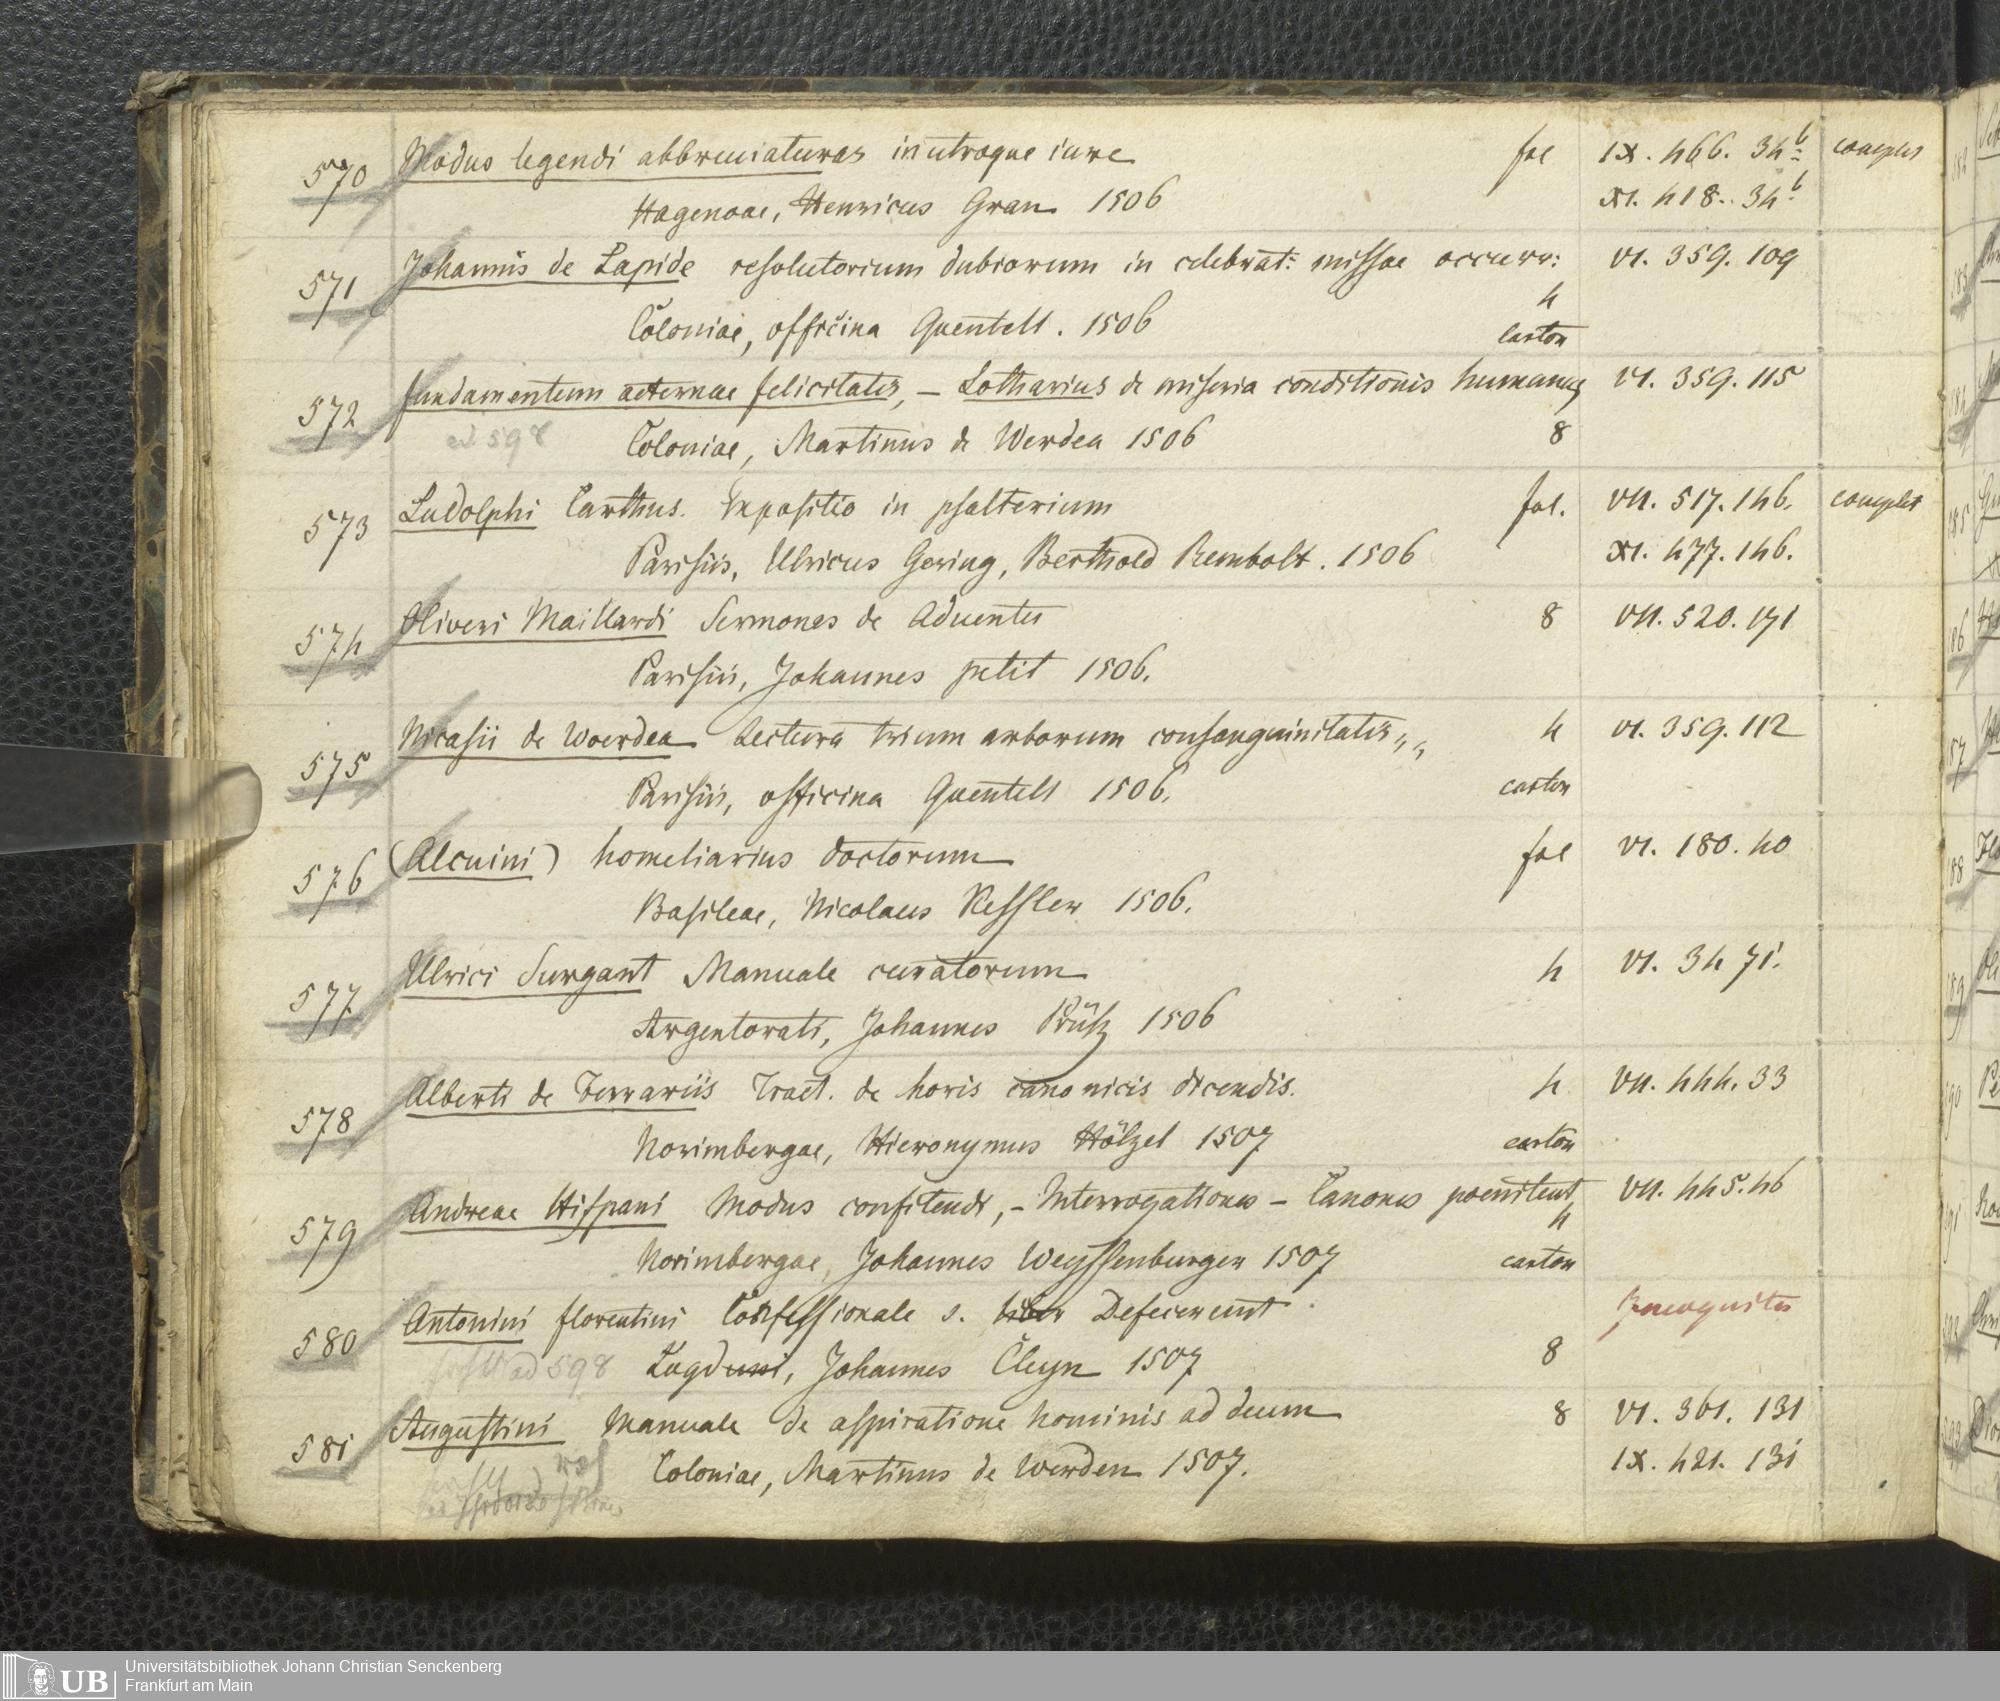 570 Modus legendi abbreuiaturas in utroque iure fol IX. 466. 34b complet
Hagenoae, Henricus Gran 1506 XI. 418. 34b
571 Johannis de Lapide resolutorium dubiorum in celebrat: missae occurr: VI. 359. 109
4
Coloniae, officina Quentell. 1506 carton
572 fundamentum aeternae felicitatis, – Lotharius de miseria conditionis humanae VI. 359. 115
ad 598 Coloniae, Martinus de Werdea 1506 8
573 Ludolphi Carthus. Expositio in psalterium fol. VII. 517. 146. complet
Parisiis, Ulricus Gering, Berthold Rembolt. 1506 XI. 477. 146.
574 Oliveri Maillardi Sermones de Aduentu 8 VII. 520. 171
Parisiis, Johannes petit 1506.
575 Nicasii de Woerdea Lectura trium arborum consanguinitatis,, 4 VI. 359. 112
Parisiis, officina Quentell 1506. carton
576 (Alcuini) homeliarius doctorum fol VI. 180. 40
Basileae, Nicolaus Kessler 1506.
577 Ulrici Surgant Manuale curatorum 4 VI. 34 71.
Argentorati, Johannes Prüß 1506
578 Alberti de Ferrariis Tract. de horis canonicis dicendis. 4 VII. 444. 33
Norimbergae, Hieronymus Hölzel 1507 carton
579 Andreae Hispani Modus confitendi, – Interrogationes – Canones poenitent, VII. 445. 46
4
Norimbergae, Johannes Weyssenburger 1507 carton
580 Antonini florentini Confessionale s. liber Defecerunt Incognitus
ad 598 Lugduni, Johannes Cleyn 1507 8
581 Augustini Manuale de aspiratione hominis ad deum 8 VI. 361. 131
Coloniae, Martinus de Werden 1507. IX. 421. 131
UB
Universitätsbibliothek Johann Christian Senckenberg
Frankfurt am Main